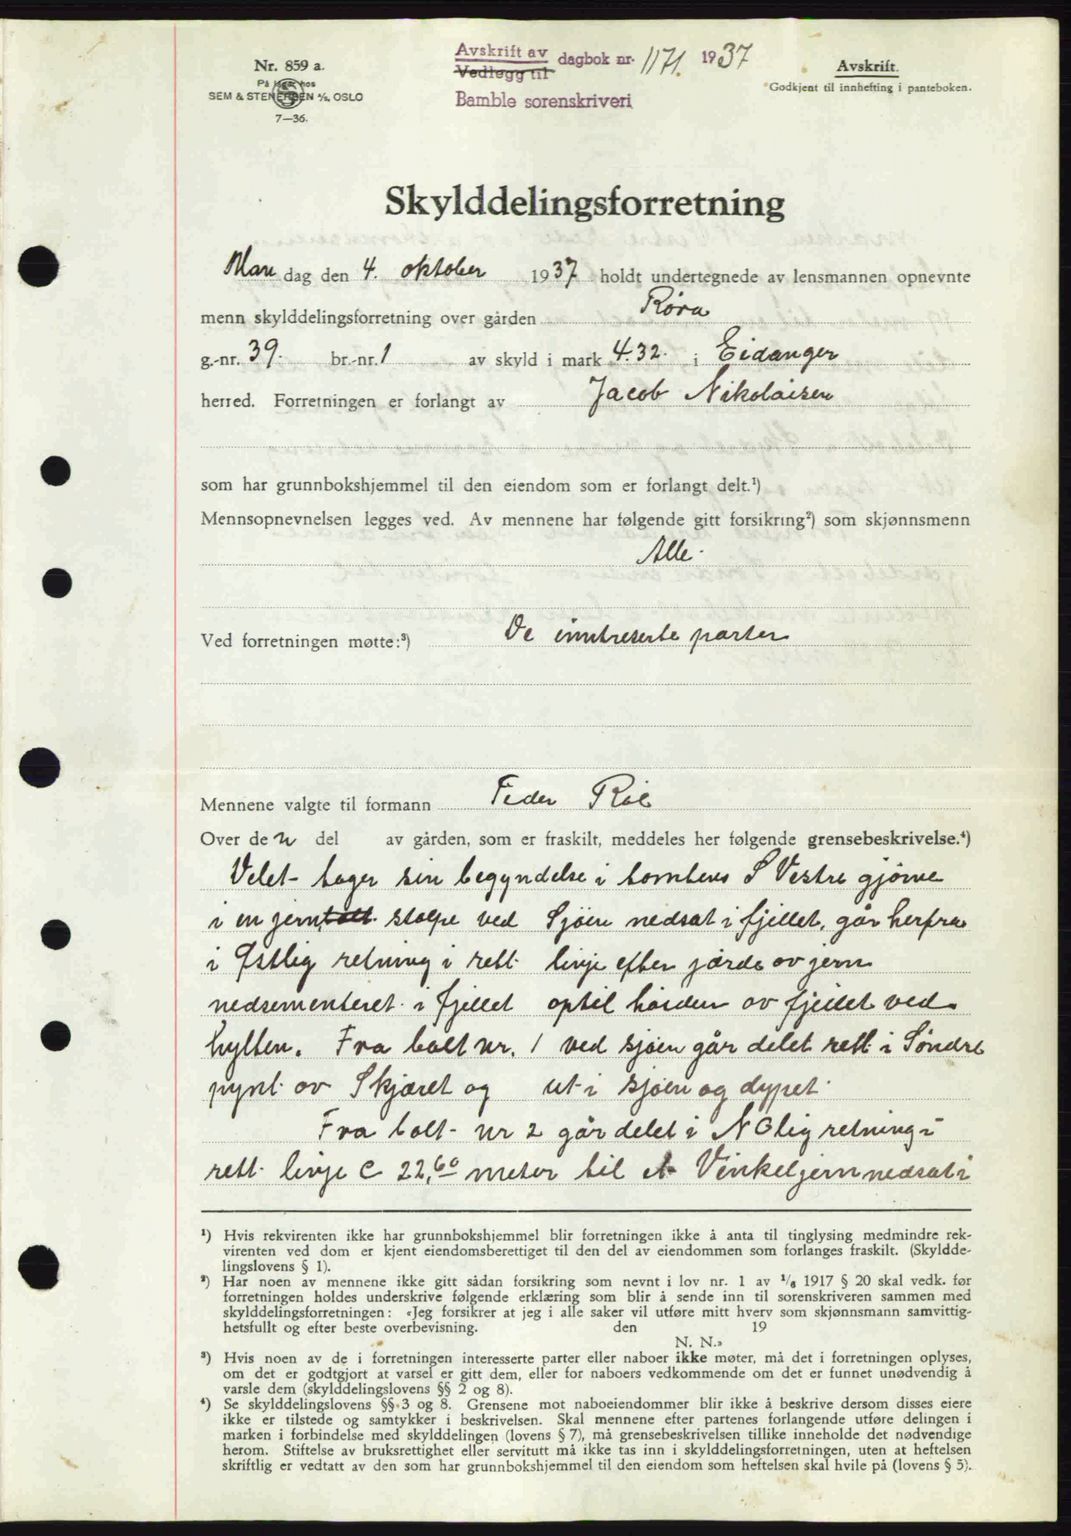 Nr. 859 a.
På lager hos
SEM & STENERSEN A/S, OSLO
7—36.
Avskrift av dagbok nr. 1171. 1937
Vedlegg til
Bamble sorenskriveri
Avskrift.
Godkjent til innhefting i panteboken.
Skylddelingsforretning
Man dag den 4. oktober 1937 holdt undertegnede av lensmannen opnevnte
menn skylddelingsforretning over gården Røra
g.-nr. 39. br.-nr. 1 av skyld i mark 4.32. i Eidanger
herred. Forretningen er forlangt av Jacob Nikolaisen
som har grunnbokshjemmel til den eiendom som er forlangt delt.¹)
Mennsopnevnelsen legges ved. Av mennene har følgende gitt forsikring²) som skjønnsmenn
Alle.
Ved forretningen møtte:³) De inntreserte parter
Mennene valgte til formann Peder
Over de n del av gården, som er fraskilt, meddeles her følgende grensebeskrivelse.⁴)
Delet tager sin begyndelse i tomtens S Vestre gjørne
i en jern bolt stolpe ved Sjöen nedsat i fjellet, går herfra
i Østlig retning i rett linje efter jærde ov jern
nedsementeret i fjellet optil høiden ov fjellet ved
hytten. Fra bolt nr. 1 ved sjøen går delet rett i Søndre
pynt ov Skjæret og ut i sjøen og dypet.
Fra bolt nr 2 går delet i N Olig retning i
rett linje C 22,60 meter til et Vinkeljern nedsat i
¹) Hvis rekvirenten ikke har grunnbokshjemmel blir forretningen ikke å anta til tinglysing medmindre rek-
virenten ved dom er kjent eiendomsberettiget til den del av eiendommen som forlanges fraskilt. (Skyldde-
lingslovens § 1).
²) Har noen av mennene ikke gitt sådan forsikring som nevnt i lov nr. 1 av 1/6 1917 § 20 skal vedk. før
forretningen holdes underskrive følgende erklæring som blir å sende inn til sorenskriveren sammen med
skylddelingsforretningen: «Jeg forsikrer at jeg i alle saker vil utføre mitt hverv som skjønnsmann samvittig-
hetsfullt og efter beste overbevisning. den 19
N. N.»
³) Hvis noen av de i forretningen interesserte parter eller naboer ikke møter, må det i forretningen oplyses,
om det er godtgjort at varsel er gitt dem, eller for naboers vedkommende om det er funnet unødvendig å
varsle dem (skylddelingslovens §§ 2 og 8).
⁴) Se skylddelingslovens §§ 3 og 8. Grensene mot naboeiendommer blir ikke å beskrive dersom disses eiere
ikke er tilstede og samtykker i beskrivelsen. Skal mennene efter partenes forlangende utføre delingen i
marken i forbindelse med skylddelingen (lovens § 7), må grensebeskrivelsen tillike inneholde det nødvendige
herom. Stiftelse av bruksrettighet eller servitutt må ikke tas inn i skylddelingsforretningen, uten at heftelsen
skriftlig er vedtatt av den som har grunnbokshjemmel til den eiendom som heftelsen skal hvile på (lovens § 5).